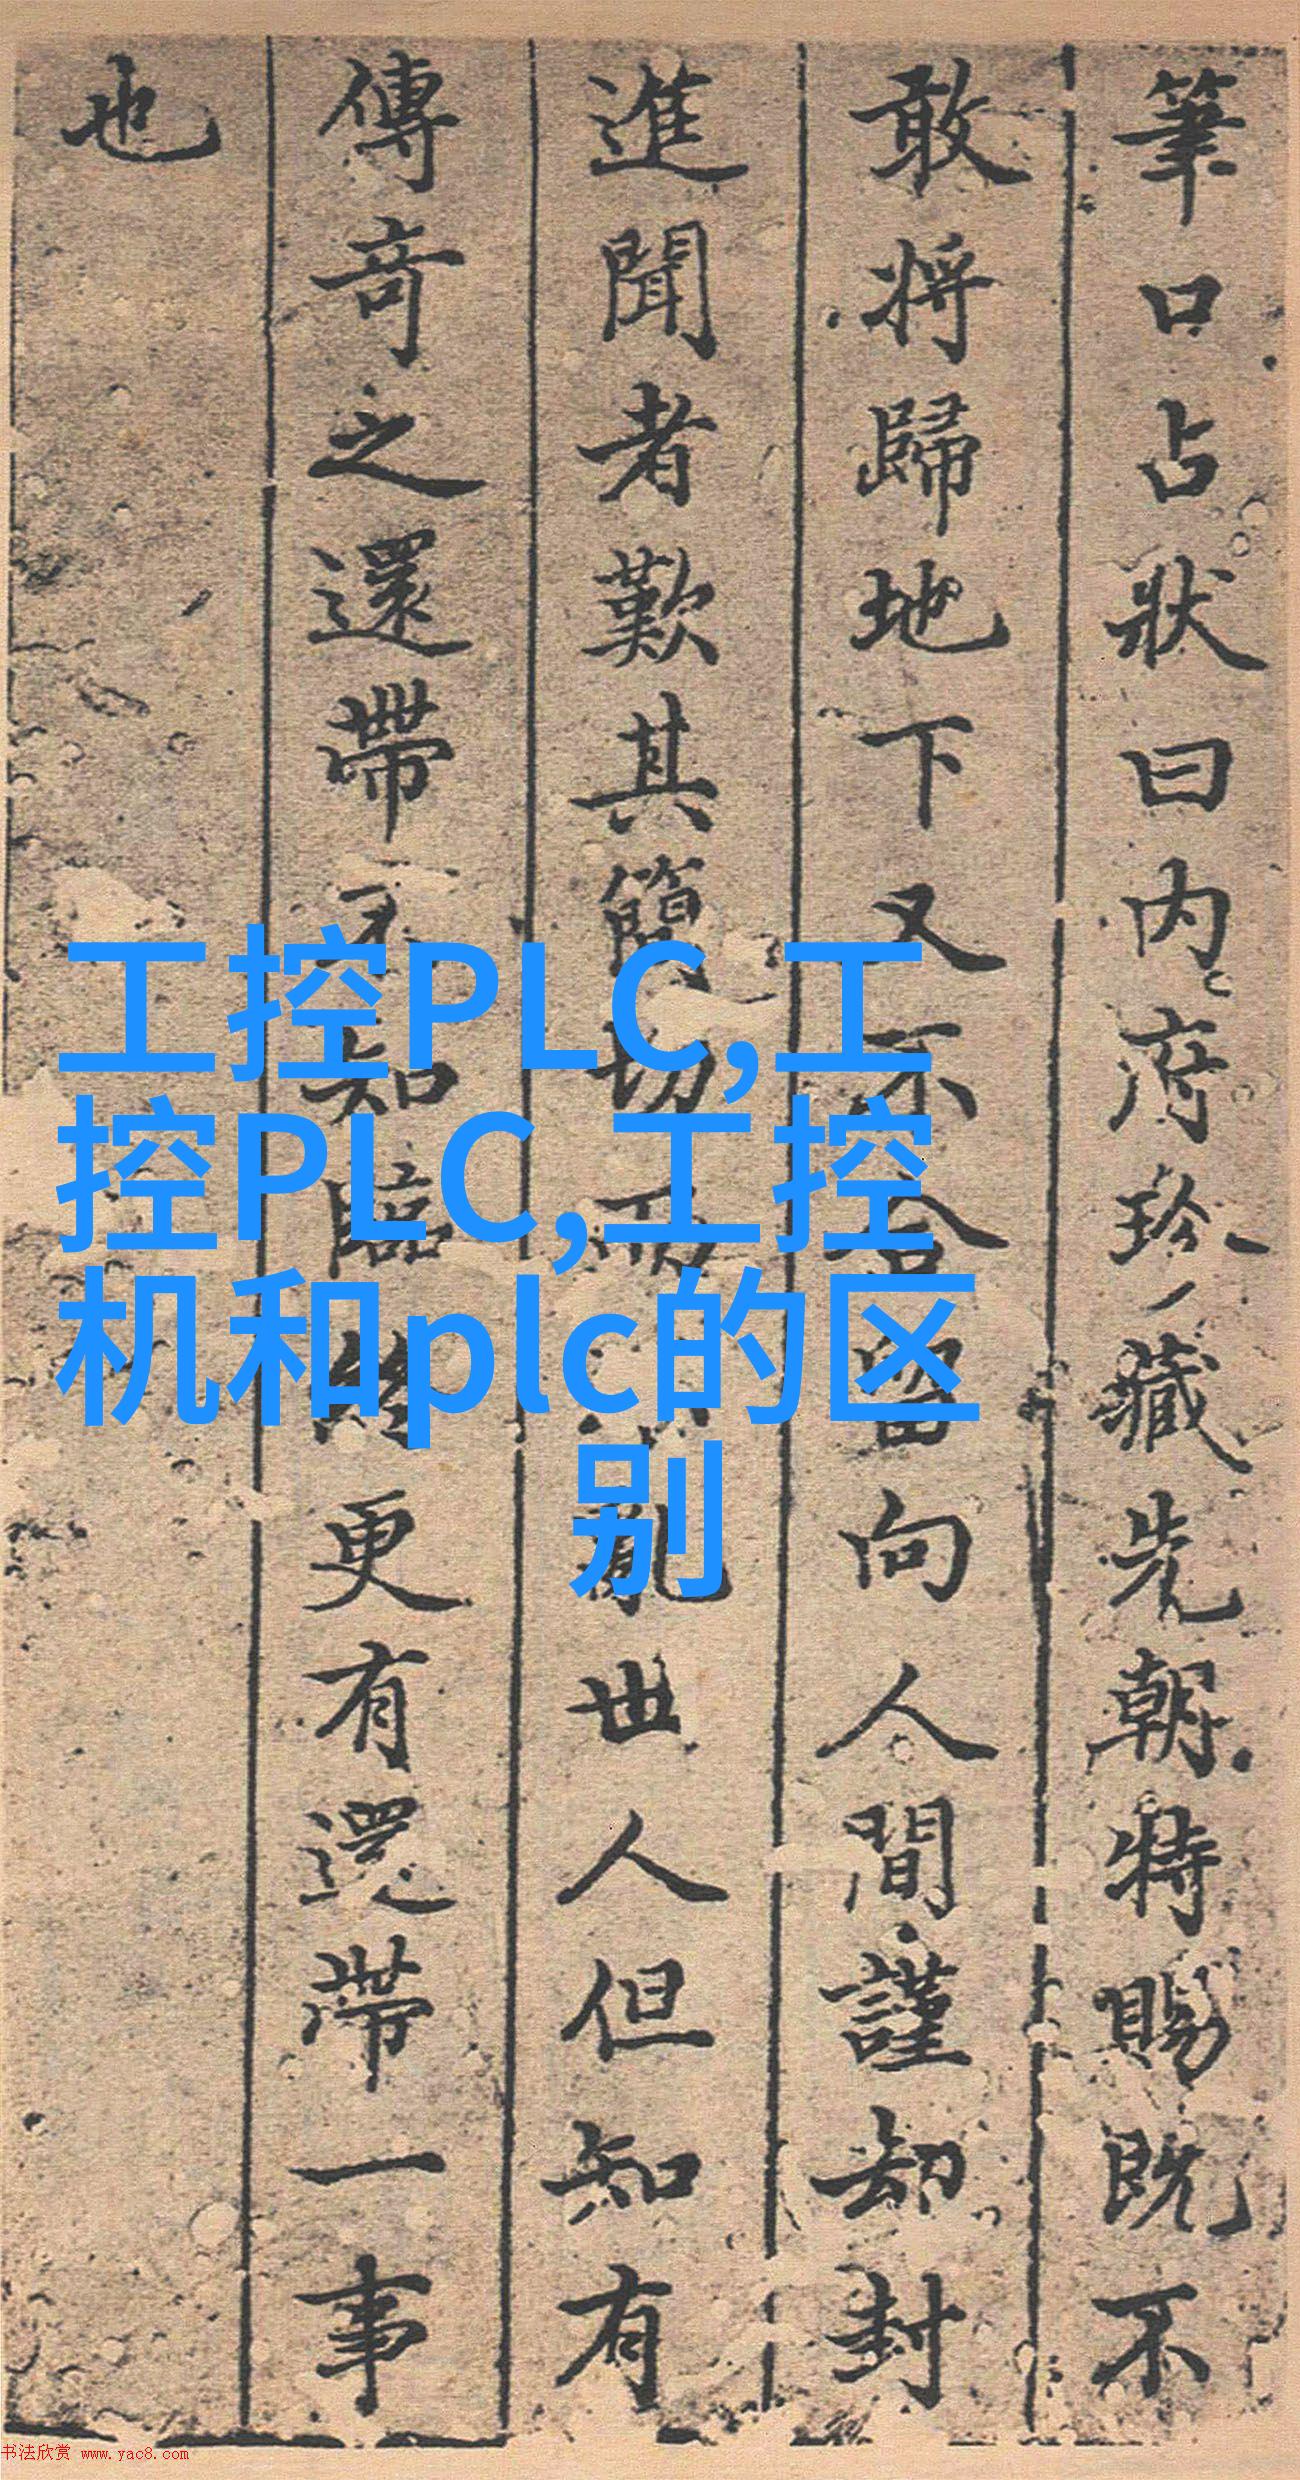 筆口占狀曰內府珍藏先朝特賜既不
敢將歸地下又不合留向人間謹却封
進聞者歎其簡切而不亂世人但知有
傳奇之還帶不知臨終更有還帶一事
也
工控PLC,工
控PLC,工控
机和plc的区
别
书法欣赏 www.yac8.com